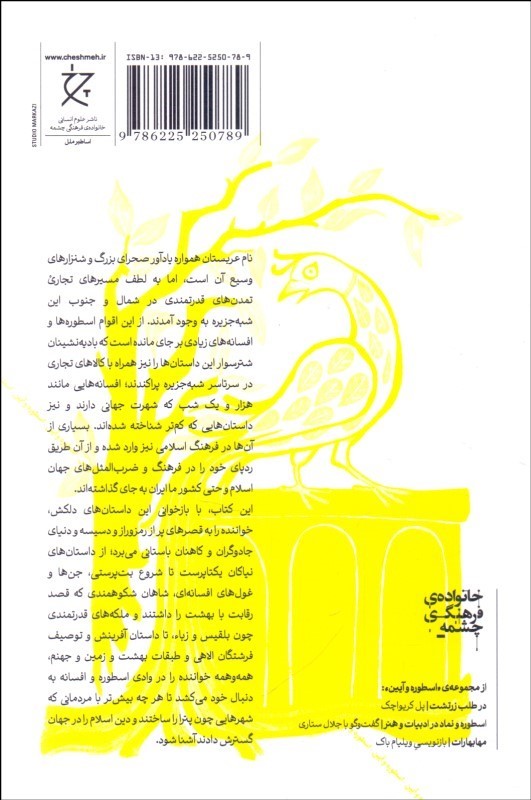 www.cheshmeh.ir
ناشر علوم انسانی
خانواده‌ی فرهنگی چشمه
اساطیر ملل
STUDIO MARKAZI
ISBN-13: 978-622-5250-78-9
9 786225 250789
نام عربستان همواره یادآور صحرای بزرگ و شنزارهای
وسیع آن است، اما به لطف مسیرهای تجاریْ
تمدن‌های قدرتمندی در شمال و جنوب این
شبه‌جزیره به وجود آمدند. از این اقوام اسطوره‌ها و
افسانه‌های زیادی بر جای مانده است که بادیه‌نشینان
شترسوار این داستان‌ها را نیز همراه با کالاهای تجاری
در سرتاسر شبه‌جزیره پراکندند؛ افسانه‌هایی مانند
هزار و یک شب که شهرت جهانی دارند و نیز
داستان‌هایی که کم‌تر شناخته شده‌اند. بسیاری از
آن‌ها در فرهنگ اسلامی نیز وارد شده و از آن طریق
ردپای خود را در فرهنگ و ضرب‌المثل‌های جهان
اسلام و حتی کشور ما ایران به جای گذاشته‌اند.
این کتاب، با بازخوانی این داستان‌های دلکش،
خواننده را به قصرهای پر از رمزوراز و دسیسه و دنیای
جادوگران و کاهنان باستانی می‌برد؛ از داستان‌های
نیاکان یکتاپرست تا شروع بت‌پرستی، جن‌ها و
غول‌های افسانه‌ای، شاهان شکوهمندی که قصد
رقابت با بهشت را داشتند و ملکه‌های قدرتمندی
چون بلقیس و زباء، تا داستان آفرینش و توصیف
فرشتگان الاهی و طبقات بهشت و زمین و جهنم،
همه‌وهمه خواننده را در وادی اسطوره و افسانه به
دنبال خود می‌کشد تا هر چه بیش‌تر با مردمانی که
شهرهایی چون پترا را ساختند و دین اسلام را در جهان
گسترش دادند آشنا شود.
خانواده‌ی
فرهنگی
چشمه
از مجموعه‌ی «اسطوره و آیین»:
در طلب زرتشت | پل کریواچک
اسطوره و نماد در ادبیات و هنر | گفت‌وگو با جلال ستاری
مهابهارات | بازنویسیِ ویلیام باک